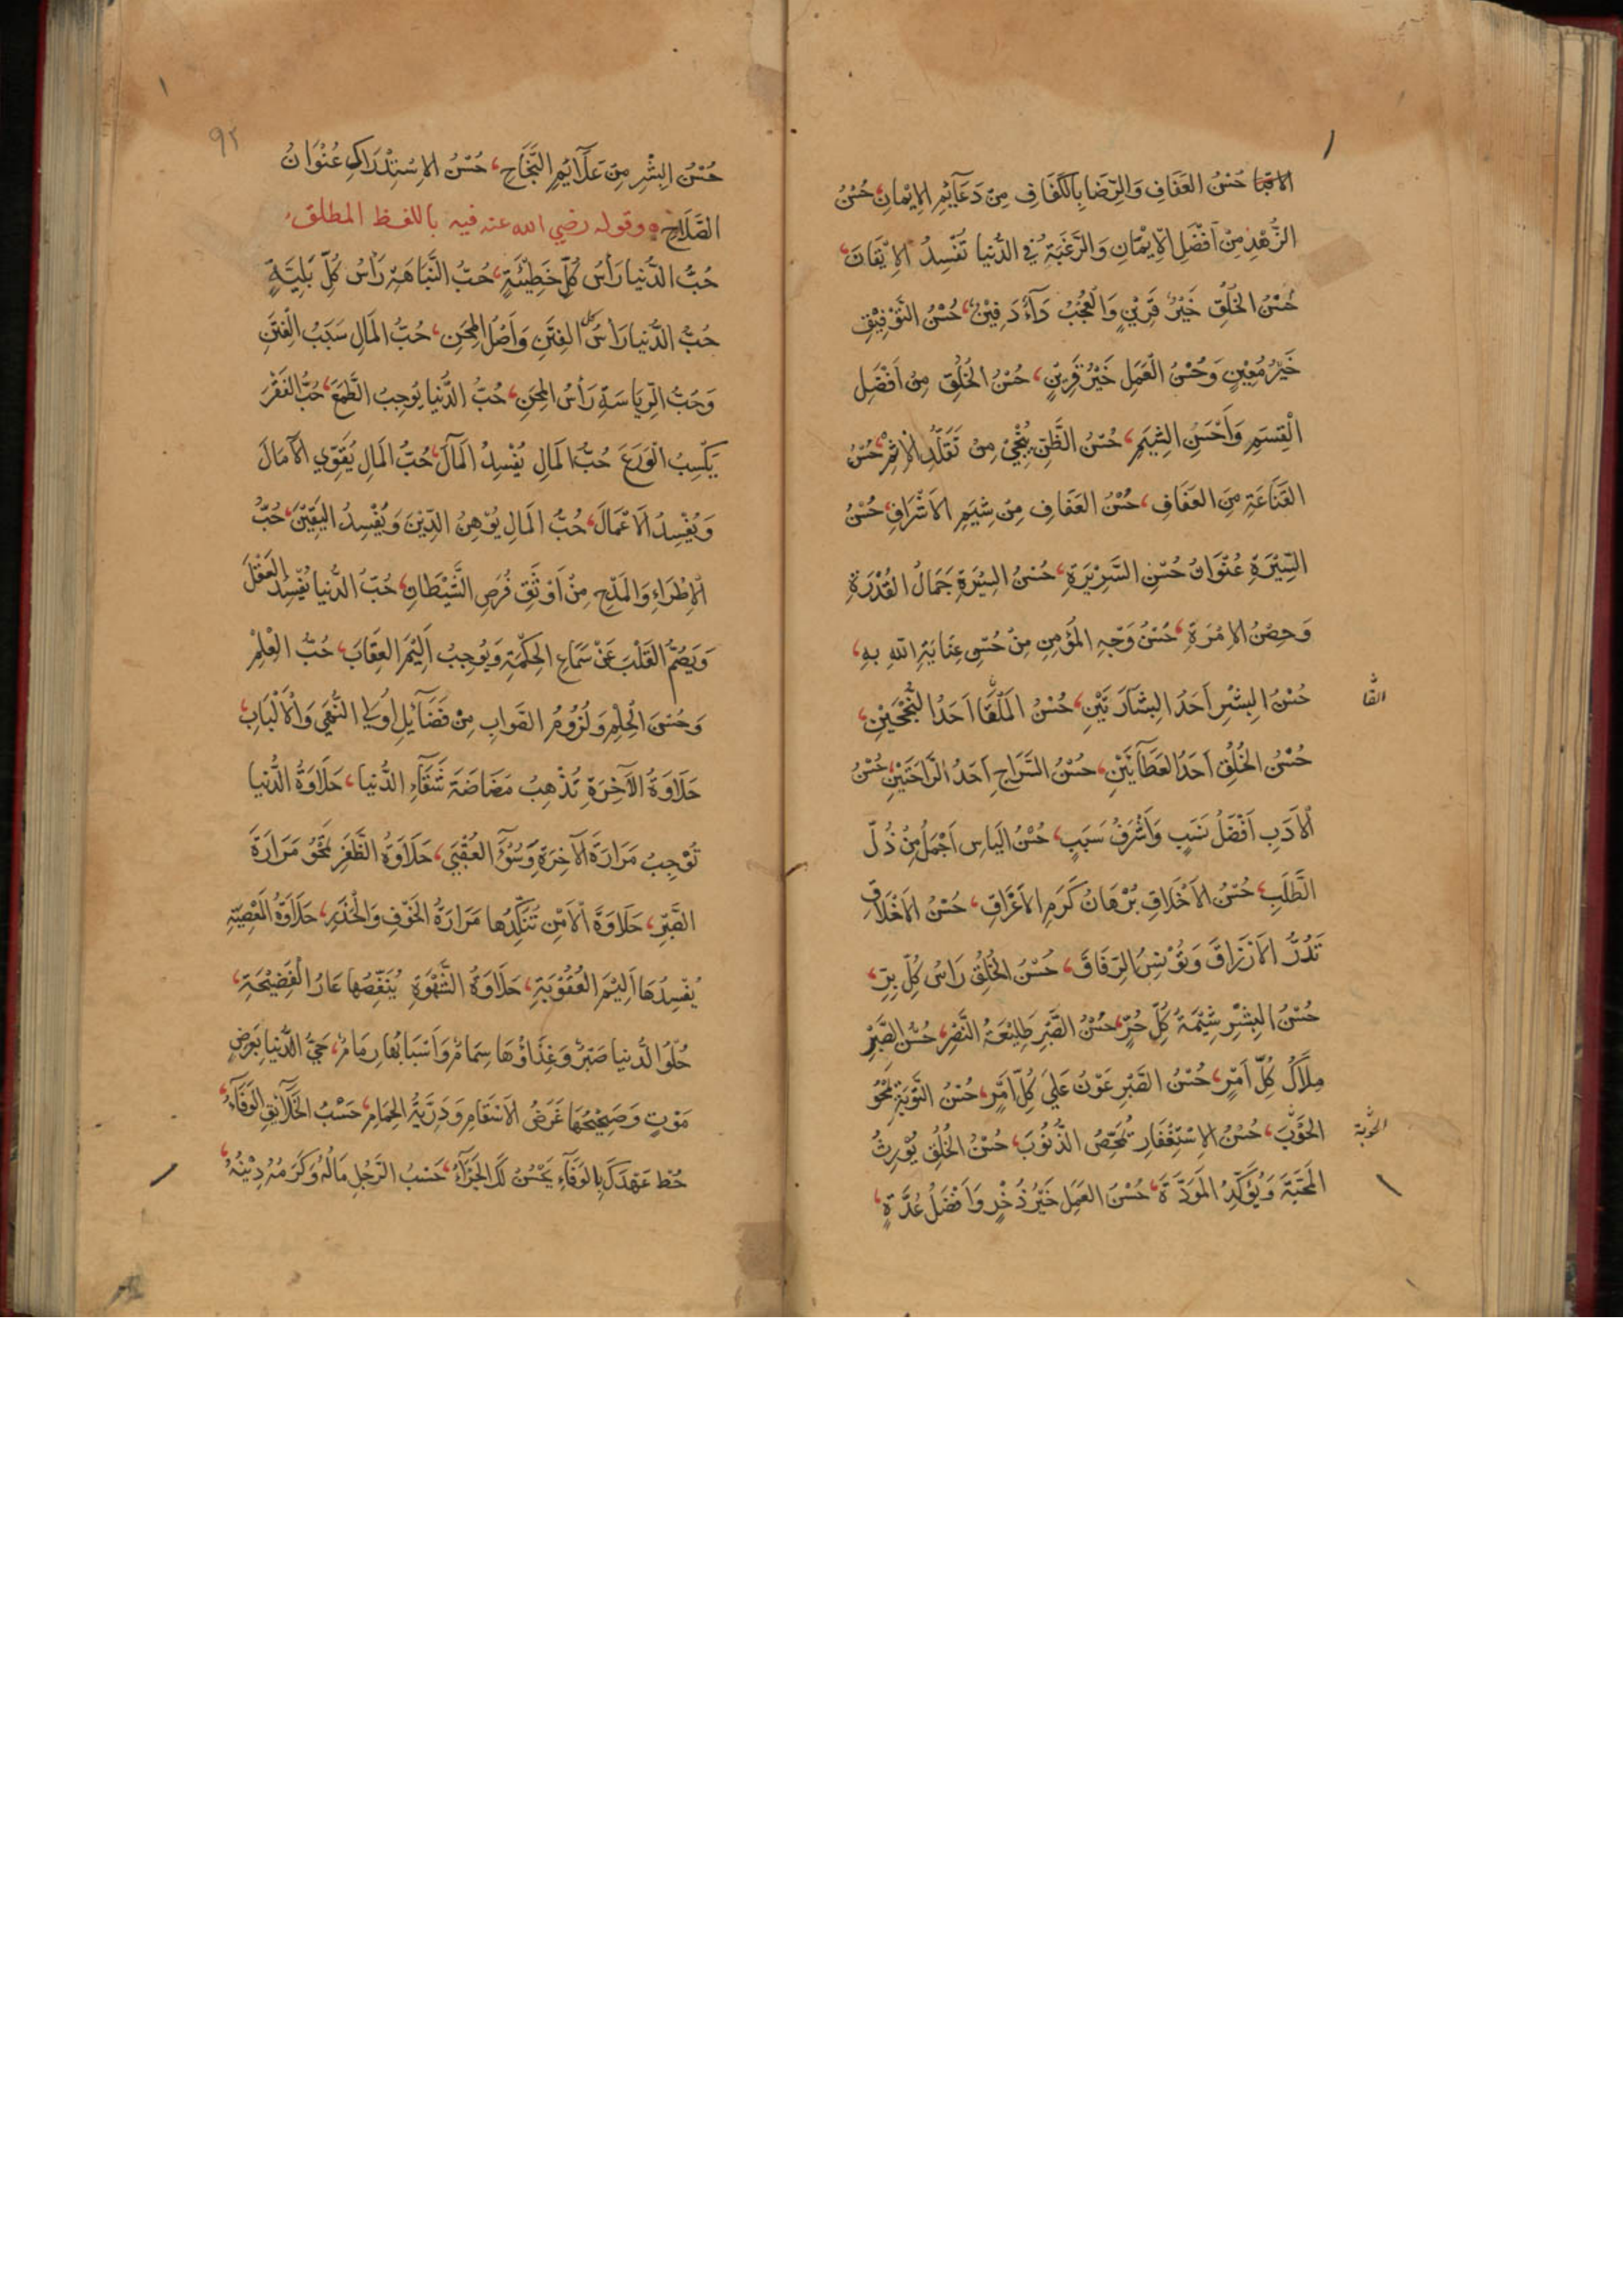 حُسْنُ العَفَافِ وَالرِّضَا بِالكَفَافِ مِنْ دَعَآئِمِ الاِيْمَانِ، حُسْنُ
الزُّهْدِ مِنْ اَفْضَلِ الاِيْمَانِ وَالرَّغْبَةُ فِي الدُّنْيَا تُفْسِدُ الاِيْقَانَ،
حُسْنُ الخُلُقِ خَيْرُ قَرِيْنٍ وَالْعُجْبُ دَآءٌ دَفِيْنٌ، حُسْنُ التَّوْفِيْقِ
خَيْرُ مُعِيْنٍ وَحُسْنُ الْعَمَلِ خَيْرُ قَرِيْنٍ، حُسْنُ الخُلُقِ مِنْ اَفْضَلِ
الْقِسَمِ وَاَحْسَنِ الشِّيَمِ، حُسْنُ الظَّنِّ يُنْجِيْ مِنْ تَقَلُّدِ الْاِثْمِ، حُسْنُ
القَنَاعَةِ مِنَ العَفَافِ، حُسْنُ العَفَافِ مِنْ شِيَمِ الاَشْرَافِ، حُسْنُ
السِّيْرَةِ عُنْوَانُ حُسْنِ السَّرِيْرَةِ، حُسْنُ السِّيْرَةِ جَمَالُ القُدْرَةِ
وَحِصْنُ الاِمْرَةِ، حُسْنُ وَجْهِ المُؤْمِنِ مِنْ حُسْنِ عِنَايَةِ اللهِ بِهِ،
حُسْنُ البِشْرِ اَحَدُ البِشَارَتَيْنِ، حُسْنُ المَلْقَا اَحَدُ النُّجْحَيْنِ،
اللقا
حُسْنُ الخُلُقِ اَحَدُ العَطَآئَيْنِ، حُسْنُ السَّرَاحِ اَحَدُ الرَّاحَتَيْنِ، حُسْنُ
الْاَدَبِ اَفْضَلُ نَسَبٍ وَاَشْرَفُ سَبَبٍ، حُسْنُ اليَاسِ اَجْمَلُ مِنْ ذُلِّ
الطَّلَبِ، حُسْنُ الاَخْلَاقِ بُرْهَانُ كَرَمِ الاَعْرَاقِ، حُسْنُ الاَخْلَاقِ
تَدُرُّ الاَرْزَاقَ وَتُؤْنِسُ الرِّفَاقَ، حُسْنُ الخُلُقِ رَاسُ كُلِّ بِرٍّ،
حُسْنُ البِشْرِ شِيْمَةُ كُلِّ حُرٍّ، حُسْنُ الصَّبْرِ طَلِيْعَةُ النَّصْرِ، حُسْنُ الصَّبْرِ
مِلَاكُ كُلِّ اَمْرٍ، حُسْنُ الصَّبْرِ عَوْنٌ عَلَى كُلِّ اَمْرٍ، حُسْنُ التَّوْبَةِ تَمْحُوْ
الحَوْبَ، حُسْنُ الاِسْتِغْفَارِ تُمَحِّصُ الذُّنُوْبَ، حُسْنُ الخُلُقِ يُوْرِثُ
الحوبة
المَحَبَّةَ وَيُؤَكِّدُ المَوَدَّةَ، حُسْنُ العَمَلِ خَيْرُ ذُخْرٍ وَاَفْضَلُ عُدَّةٍ،
٩٢
حُسْنُ البِشْرِ مِنْ عَلَآئِمِ النَّجَاحِ، حُسْنُ الاِسْتِدْرَاكِ عُنْوَانُ
الصَّلَاحِ وقوله رضي الله عنه فيه باللفظ المطلق،
حُبُّ الدُّنيا رَأسُ كُلِّ خَطِيْئَةٍ، حُبُّ النَّبَاهَةِ رَأسُ كُلِّ بَلِيَّةٍ
حُبُّ الدُّنيا رَأسُ كل الفِتَنِ وَاَصْلُ المِحَنِ، حُبُّ المَالِ سَبَبُ الْفِتَنِ
وَحُبُّ الرِّيَاسَةِ رَأسُ المِحَنِ، حُبُّ الدُّنيا يُوجِبُ الطَّمَعَ، حُبُّ الفَقْرَ
يَكْسِبُ الْوَرَعَ حُبُّ المَالِ يُفْسِدُ المَآلَ، حُبُّ المَالِ يُقَوِّي الآمَالَ
وَيُفْسِدُ الاَعْمَالَ، حُبُّ المَالِ يُوْهِنُ الدِّيْنَ وَيُفْسِدُ اليَقِيْنَ، حُبُّ
الْاِطْرَاءِ وَالمَدْحِ مِنْ اَوْثَقِ فُرَصِ الشَّيْطَانِ، حُبُّ الدُّنيا يُفْسِدُ العَقْلَ
وَيَصُمُّ القَلْبَ عَنْ سَمَاعِ الحِكْمَةِ وَيُوجِبُ اَلِيْمَ العِقَابَ، حُبُّ الْعِلْمِ
وَحُسْنَ الْحِلْمِ وَلُزُوْمُ الصَّوَابِ مِنْ فَضَآئِلِ اُولِي النُّهَى وَالْاَلْبَابِ،
حَلَاوَةُ الآخِرَةِ تُذْهِبُ مَضَاضَةَ شَقَآءِ الدُّنيا، حَلَاوَةُ الدُّنيا
تُوْجِبُ مَرَارَةَ الآخِرَةِ وَسُوْٓءَ العُقْبَى، حَلَاوَةُ الظَّفَرِ تَمْحُوْ مَرَارَةَ
الصَّبْرِ، حَلَاوَةُ الْاَمْنِ تُنَكِّدُها مَرَارَةُ الخَوْفِ وَالْحَذَرِ، حَلَاوَةُ المَعْصِيَةِ
يُفْسِدُهَا اَلِيْمُ العُقُوْبَةِ، حَلَاوَةُ الشَّهْوَةِ يُنَغِّصُها عَارُ الْفَضِيْحَةِ،
حُلْوُ الدُّنيا صَبْرٌ وَغِذَاؤُهَا سِمَامٌ وَاَسْبَابُهَا رِمَامٌ، حَيُّ الدُّنيا بِعَرَضِ
مَوْتٍ وَصَحِيْحُهَا غَرَضُ الاَسْقَامِ وَدَرِيَّةُ الحِمَامِ، حَسْبُ الخَلَآئِقِ الوَفَآءُ،
حُطْ عَهْدَكَ بِالوَفَآءِ يَحْسُنْ لَكَ الجَزَآءُ، حَسْبُ الرَّجُلِ مَالُهُ وَكَرَمُهُ دِيْنُهُ،